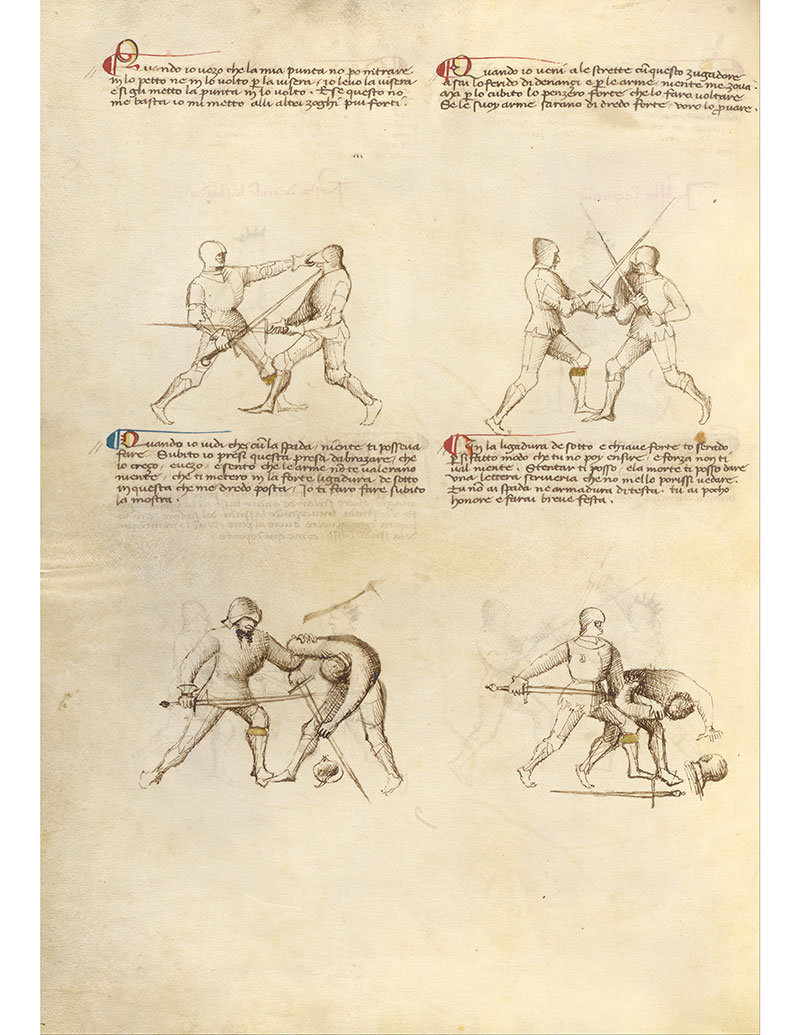 Quando io vezo che la mia punta no po nitrare
in lo petto ne in lo volto p la visera / io levo la visera
e si gli metto la punta in lo volto . Ese questo no
me basta io mi metto alli altri zoghi piu forti .
Quando io veni a le strette cu questo zugadore
Asui lo ferido di denanci e p le arme niente me zova .
Ma p lo cubito lo penzero forte che lo faro voltare
Se le suoy arme sarano di dredo forte voro lo pvare .
Quando io vidi che cu la spada / niente ti posseva
fare . Subito io presi questa presa dabrazare / che
io crezo / e vezo / e sento che le arme no te valerano
niente / che ti metero in la forte ligadura de sotto
in questa che me dredo posta / Io ti faro fare subito
la mostra .
In la ligadura de sotto e chiave forte to serado
P si fatto modo che tu no poy ensire / e forza non ti
val niente . Stentar ti posso / e la morte ti posso dare
Una lettera scriveria che no mello porissi vedare .
Tu no ai spada ne armadura di testa . tu ai pocho
honore e farai breve festa .